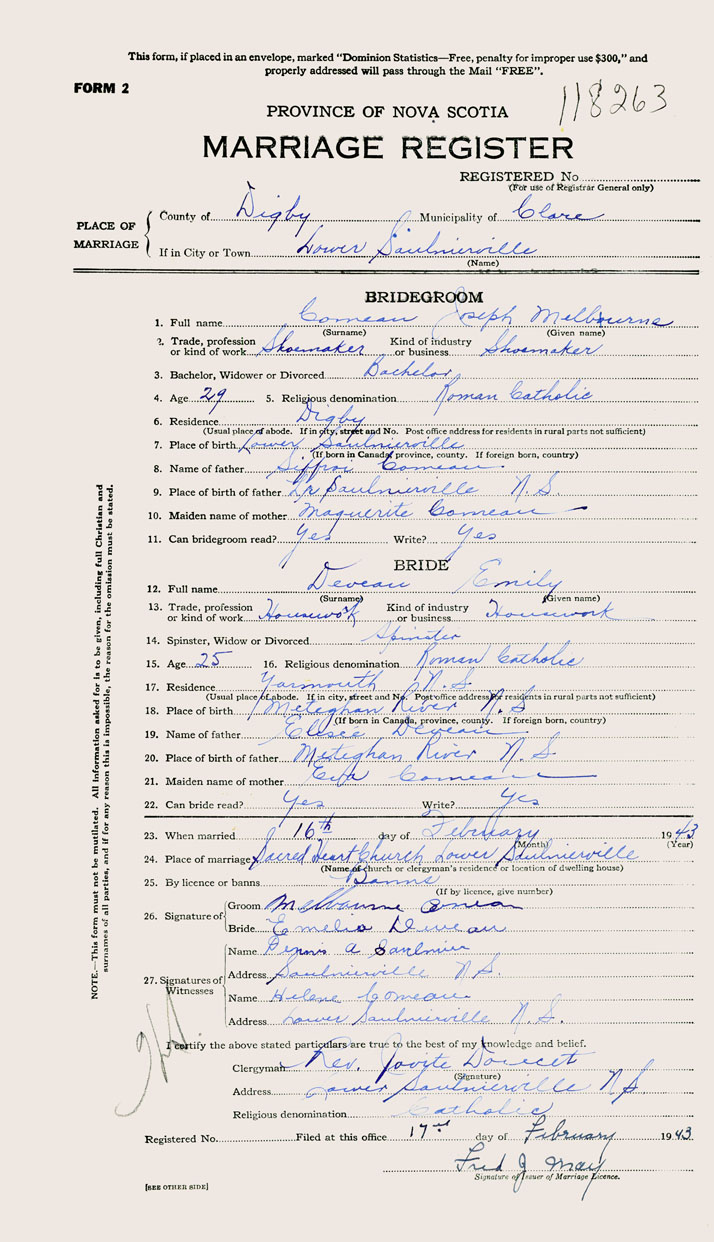 This form, if placed in an envelope, marked "Dominion Statistics—Free, penalty for improper use $300," and
properly addressed will pass through the Mail "FREE".
FORM 2
118263
PROVINCE OF NOVA SCOTIA
MARRIAGE REGISTER
REGISTERED No.
(For use of Registrar General only)
PLACE OF MARRIAGE
County of Digby Municipality of Clare
If in City or Town Lower Saulnierville
(Name)
BRIDEGROOM
1. Full name Comeau Joseph Melbourne
(Surname) (Given name)
2. Trade, profession or kind of work Shoemaker Kind of industry or business Shoemaker
3. Bachelor, Widower or Divorced Bachelor
4. Age 29 5. Religious denomination Roman Catholic
6. Residence Digby
(Usual place of abode. If in city, street and No. Post office address for residents in rural parts not sufficient)
7. Place of birth Lower Saulnierville
(If born in Canada, province, county. If foreign born, country)
8. Name of father Siffroi Comeau
9. Place of birth of father Lr Saulnierville N.S.
10. Maiden name of mother Maguerite Comeau
11. Can bridegroom read? Yes Write? Yes
BRIDE
12. Full name Deveau Emily
(Surname) (Given name)
13. Trade, profession or kind of work Housework Kind of industry or business Housework
14. Spinster, Widow or Divorced Spinster
15. Age 25 16. Religious denomination Roman Catholic
17. Residence Yarmouth N.S.
(Usual place of abode. If in city, street and No. Post office address for residents in rural parts not sufficient)
18. Place of birth Meteghan River N.S.
(If born in Canada, province, county. If foreign born, country)
19. Name of father Elisée Deveau
20. Place of birth of father Meteghan River N.S
21. Maiden name of mother Eva Comeau
22. Can bride read? Yes Write? Yes
23. When married 16th day of February 1943
(Month) (Year)
24. Place of marriage Sacred Heart Church Lower Saulnierville
(Name of church or clergyman's residence or location of dwelling house)
25. By licence or banns Banns
(If by licence, give number)
26. Signature of
Groom Melbourne Comeau
Bride Emelia Deveau
27. Signatures of Witnesses
Name Dennis A Saulnier
Address Saulnierville N.S.
Name Helene Comeau
Address Lower Saulnierville N.S.
I certify the above stated particulars are true to the best of my knowledge and belief.
Clergyman Rev. Jovite Doucet
(Signature)
Address Lower Saulnierville NS
Religious denomination Catholic
Registered No. Filed at this office 17 day of February 1943
Fred J May
Signature of Issuer of Marriage Licence.
[SEE OTHER SIDE]
NOTE.—This form must not be mutilated. All Information asked for is to be given, including full Christian and
surnames of all parties, and if for any reason this is impossible, the reason for the omission must be stated.